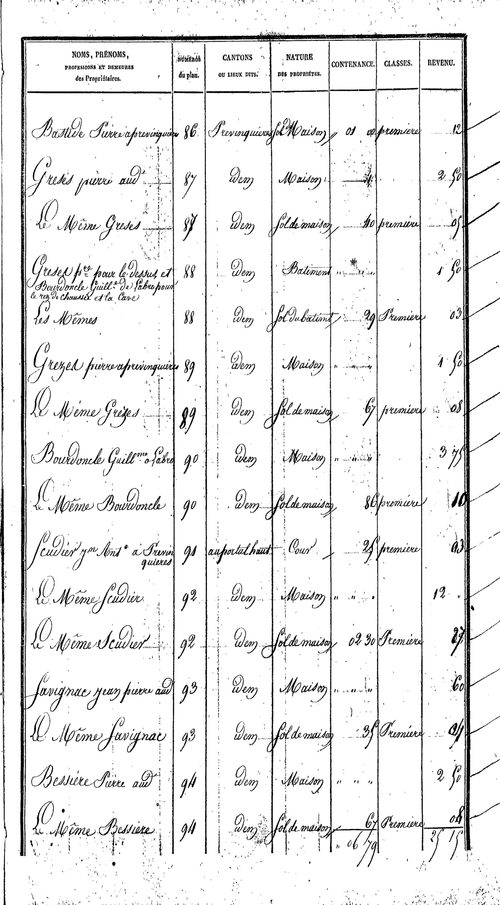 NOMS, PRÉNOMS, PROFESSIONS ET DEMEURES des Propriétaires. NUMÉROS du plan. CANTONS OU LIEUX DITS. NATURE DES PROPRIÉTÉS. CONTENANCE. CLASSES. REVENU.
Bastide Pierre a prevenquieres 86 Prevenquieres Sol Maison 01 première 12
Greses pierre aud. 87 idem Maison 2 50
Le Même Greses 87 idem Sol de maison 40 première 05
Greses pre. pour le dessus et 88 idem Batiment " " " 1 50
Bourdoncle Guill.e de Labro pour
le rez de chaussée et la Cave
Les Mêmes 88 idem Sol du batimt 29 Première 03
Grezes pierre a prevenquieres 89 idem Maison " " " 1 50
Le Même Grezes 89 idem Sol de maison 67 première 08
Bourdoncle Guillme a Labro 90 idem Maison " " " 3 75
Le Même Bourdoncle 90 idem Sol de maison 86 première 10
Scudier jn Ant.e à Previn
quieres 91 au portail haut Cour 25 première 03
Le Même Scudier 92 idem Maison " " " 12 "
Le Même Scudier 92 idem Sol de maison 02 30 Première 27
Savignac jean pierre aud 93 idem Maison " " " 60
Le Même Savignac 93 idem Sol de maison 35 Première 04
Bessiere Pierre aud 94 idem Maison " " " 2 50
Le Même Bessiere 94 idem Sol de maison 67 Première 08
" 06 79 25 15